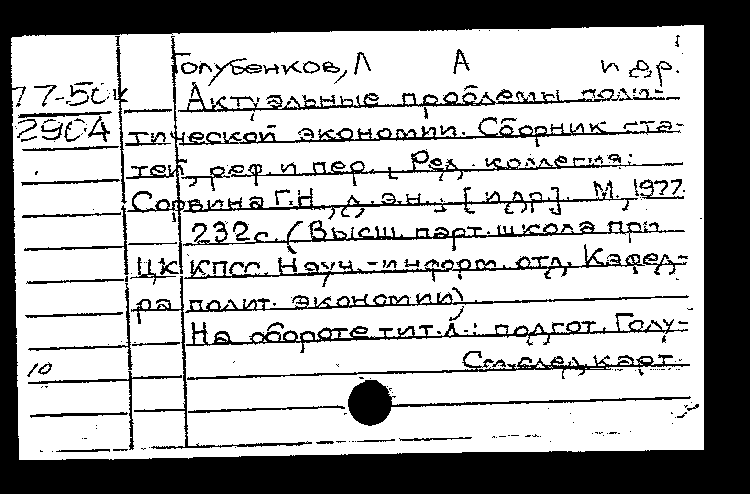 1
Голубенков, Л А и др.
77-50к
2904
Актуальные проблемы поли-
тической экономии. Сборник ста-
тей, реф. и пер. [Ред. коллегия:
Сорвина Г.Н., д.э.н., [и др.]. М., 1977.
232 с. (Высш. парт. школа при
ЦК КПСС. Науч.-информ. отд. Кафед-
ра полит. экономии)
На обороте тит. л.: подгот. Голу-
См. след. карт.
10